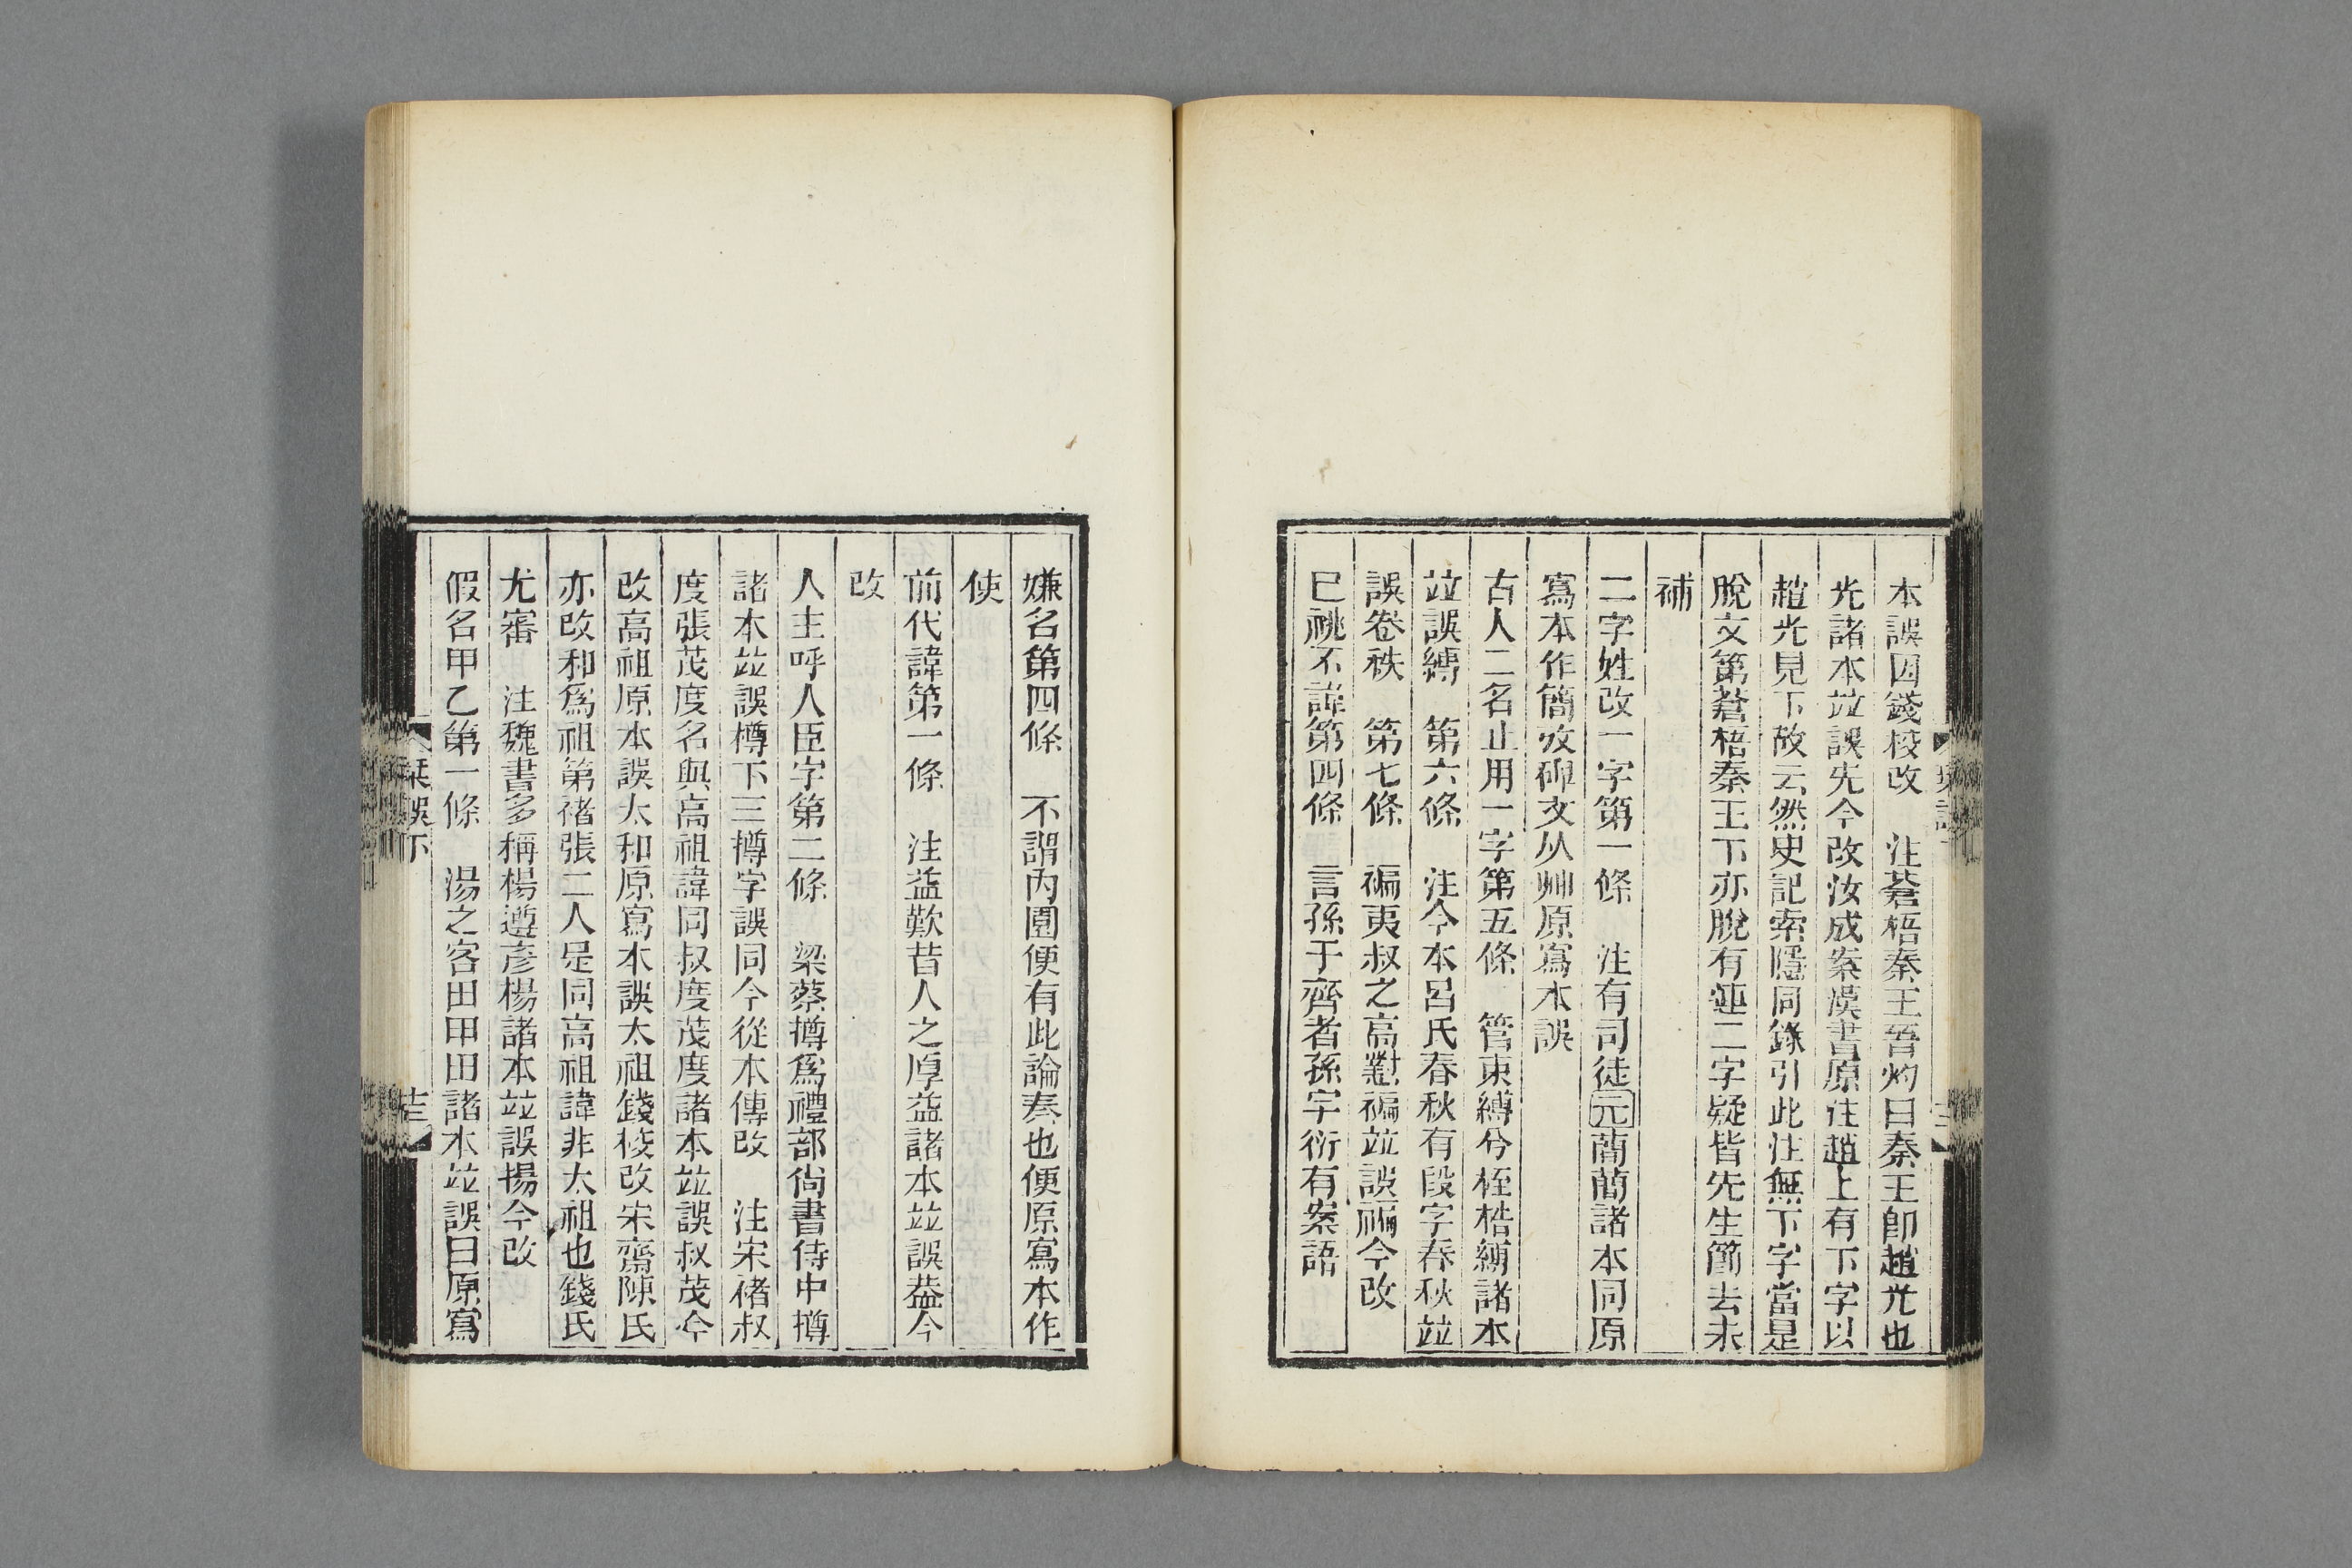 本誤因錢校改　注蒼梧秦王吾灼曰秦王卽趙光也
光諸本竝誤先今改汝成案漢書原注趙上有下字以
趙光見下故云然史記索隱同錄引此注無下字當是
脫文第蒼梧秦王下亦脫有連二字疑皆先生節去未
補
二字姓改一字第一條　注有司徒元蕳蕳諸本同原
寫本作簡攷碑文从艸原寫本誤
古人二名止用一字第五條　管束縛兮桎梏縛諸本
竝誤縳　第六條　注今本呂氏春秋有段字春秋竝
誤卷袟　第七條　褊夷叔之高懟褊竝誤禍今改
已祧不諱第四條　言孫于齊者孫字衍有案語
嫌名第四條　不謂內園便有此論奏也便原寫本作
使
前代諱第一條　注益歎昔人之厚益諸本竝誤葢今
改
人主呼人臣字第二條　梁蔡撙爲禮部尙書侍中撙
諸本竝誤樽下三撙字誤同今從本傳改　注宋褚叔
度張茂度名與高祖諱同叔度茂度諸本竝誤叔茂今
改高祖原本誤太和原寫本誤太祖錢校改宋齋陳氏
亦改和爲祖第褚張二人是同高祖諱非太祖也錢氏
尤審　注魏書多稱楊遵彥楊諸本竝誤揚今改
假名甲乙第一條　湯之客田甲田諸本竝誤曰原寫
栞誤下